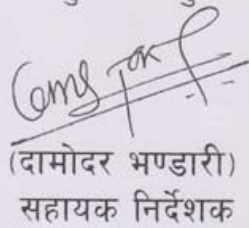 (दामोदर भण्डारी)
सहायक निर्देशक